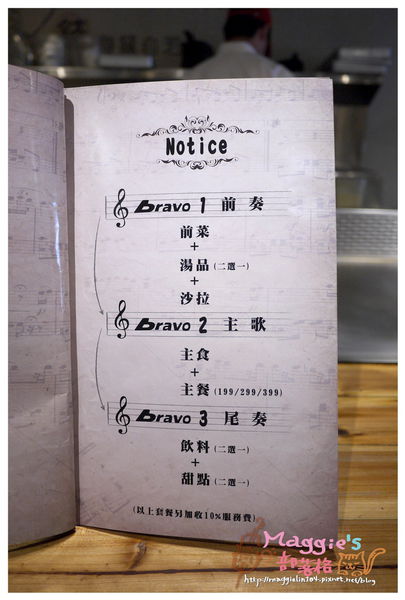 Notice
bravo 1 前奏
前菜
+
湯品(二選一)
+
沙拉
bravo 2 主歌
主食
+
主餐(199/299/399)
bravo 3 尾奏
飲料(二選一)
+
甜點(二選一)
(以上套餐另加收10%服務費)
Maggie's
部落格
http://maggielin104.pixnet.net/blog